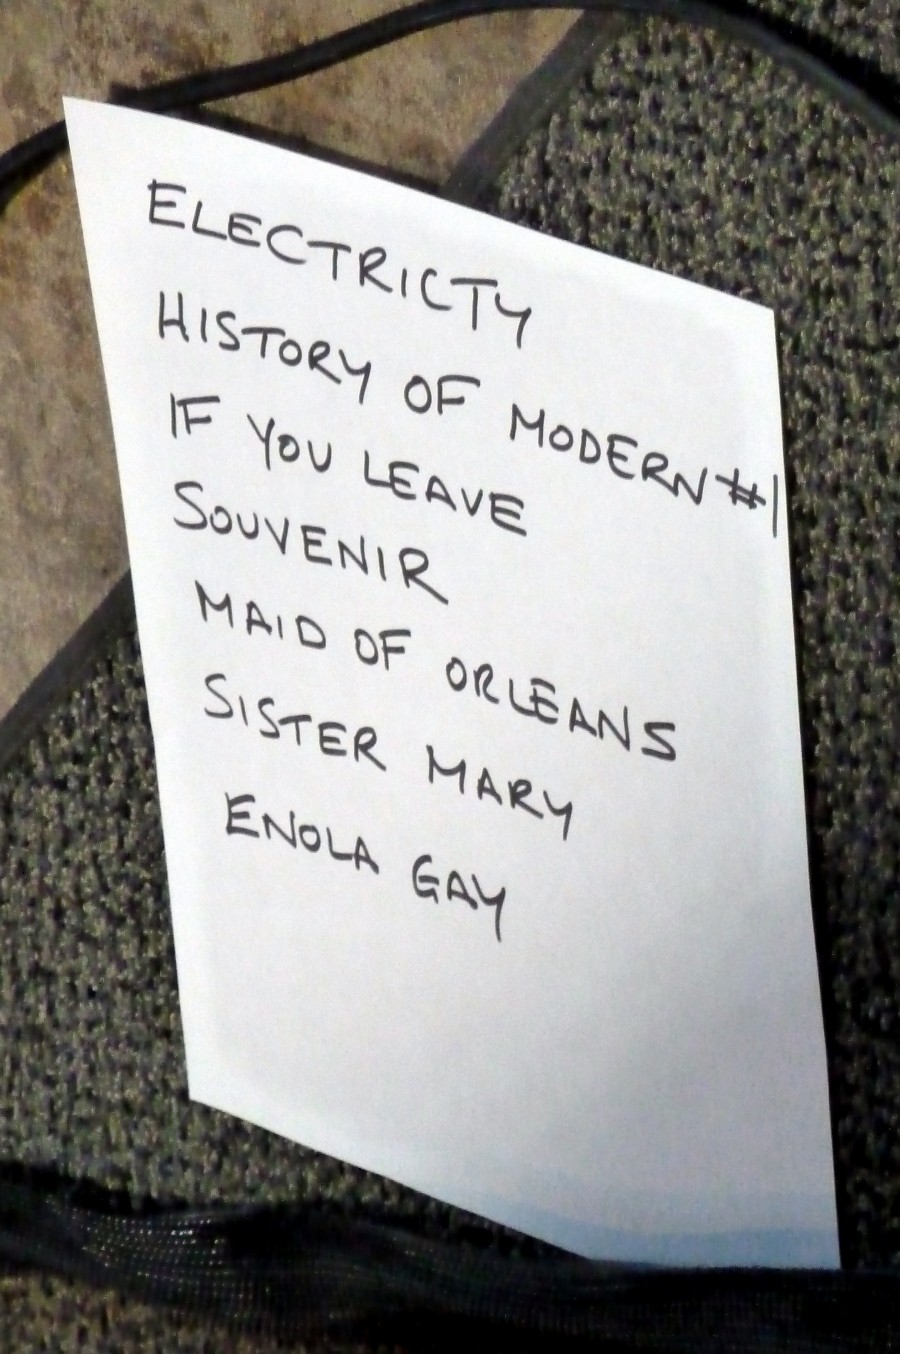 ELECTRICTY
HISTORY OF MODERN #1
IF YOU LEAVE
SOUVENIR
MAID OF ORLEANS
SISTER MARY
ENOLA GAY